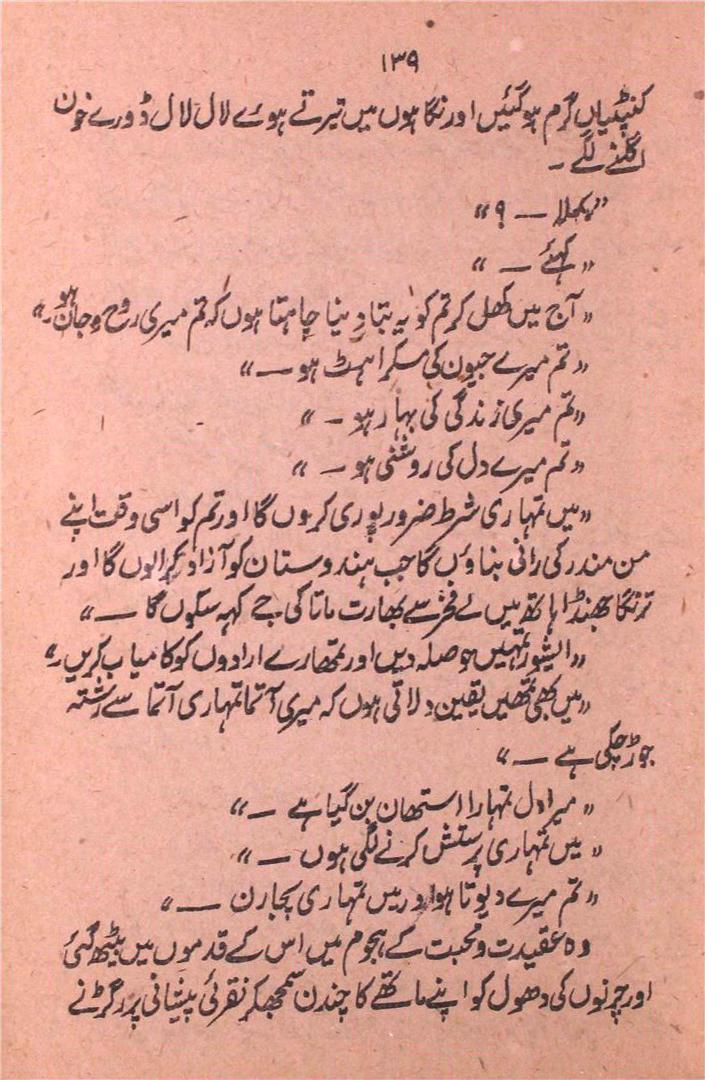 ۱۳۹
کنپٹیاں گرم ہو گئیں اور نگاہوں میں تیرتے ہوئے لال لال ڈورے خون
اگلنے لگے ۔
”بملا — ؟“
”کہئے —“
”آج میں کھل کر تم کو یہ بتا دینا چاہتا ہوں کہ تم میری روح و جان ہو۔“
”تم میرے جیون کی مسکراہٹ ہو —“
”تم میری زندگی کی بہار ہو ۔“
”تم میرے دل کی روشنی ہو ۔“
”میں تمہاری شرط ضرور پوری کروں گا اور تم کو اسی وقت اپنے
من مندر کی رانی بناؤں گا جب ہندوستان کو آزاد کرالوں گا اور
ترنگا جھنڈا ہاتھ میں لے فخر سے بھارت ماتا کی جے کہہ سکوں گا —“
”ایشور تمہیں حوصلہ دیں اور تمھارے ارادوں کو کامیاب کریں۔“
”میں بھی تمھیں یقین دلاتی ہوں کہ میری آتما تمہاری آتما سے رشتہ
جوڑ چکی ہے —“
”میرا دل تمہارا استھان بن گیا ہے —“
”میں تمہاری پرستش کرنے لگی ہوں —“
”تم میرے دیوتا ہو اور میں تمہاری پجارن —“
وہ عقیدت و محبت کے ہجوم میں اس کے قدموں میں بیٹھ گئی
اور چرنوں کی دھول کو اپنے ماتھے کا چندن سمجھ کر نقرئی پیشانی پر رگڑنے